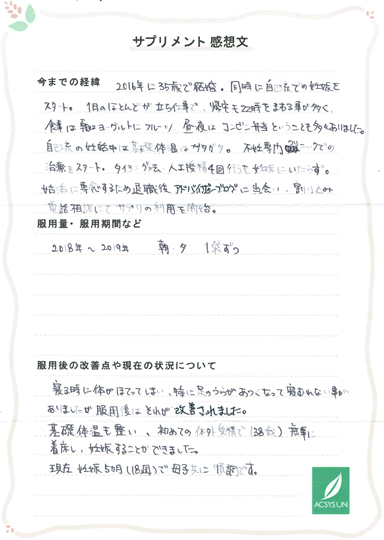 サプリメント 感想文
今までの経緯 2016年に35歳で結婚。同時に自己流での妊娠を
スタート。1日のほとんどが立ち仕事で、帰宅も22時をまわる事が多く、
食事は朝はヨーグルトにフルーツ、昼夜はコンビニ弁当ということも多々ありました。
自己流の妊活中は基礎体温はガタガタ。不妊専門クリニックでの
治療をスタート。タイミング法、人工授精4回行うも妊娠にいたらず。
妊活に専念するため退職後アドバイザーブログに出会い、
電話相談にてサプリの利用を開始。
服用量・服用期間など
2018年〜2019年 朝・夕 1袋ずつ
服用後の改善点や現在の状況について
寝る時に体がほてってしまい、特に足のうらがあつくなって寝むれない事が
ありましたが服用後はそれが改善されました。
基礎体温も整い、初めての体外受精で(38歳)無事に
着床し、妊娠することができました。
現在 妊娠5カ月(18週)で母子共に順調です。
ACSYS UN